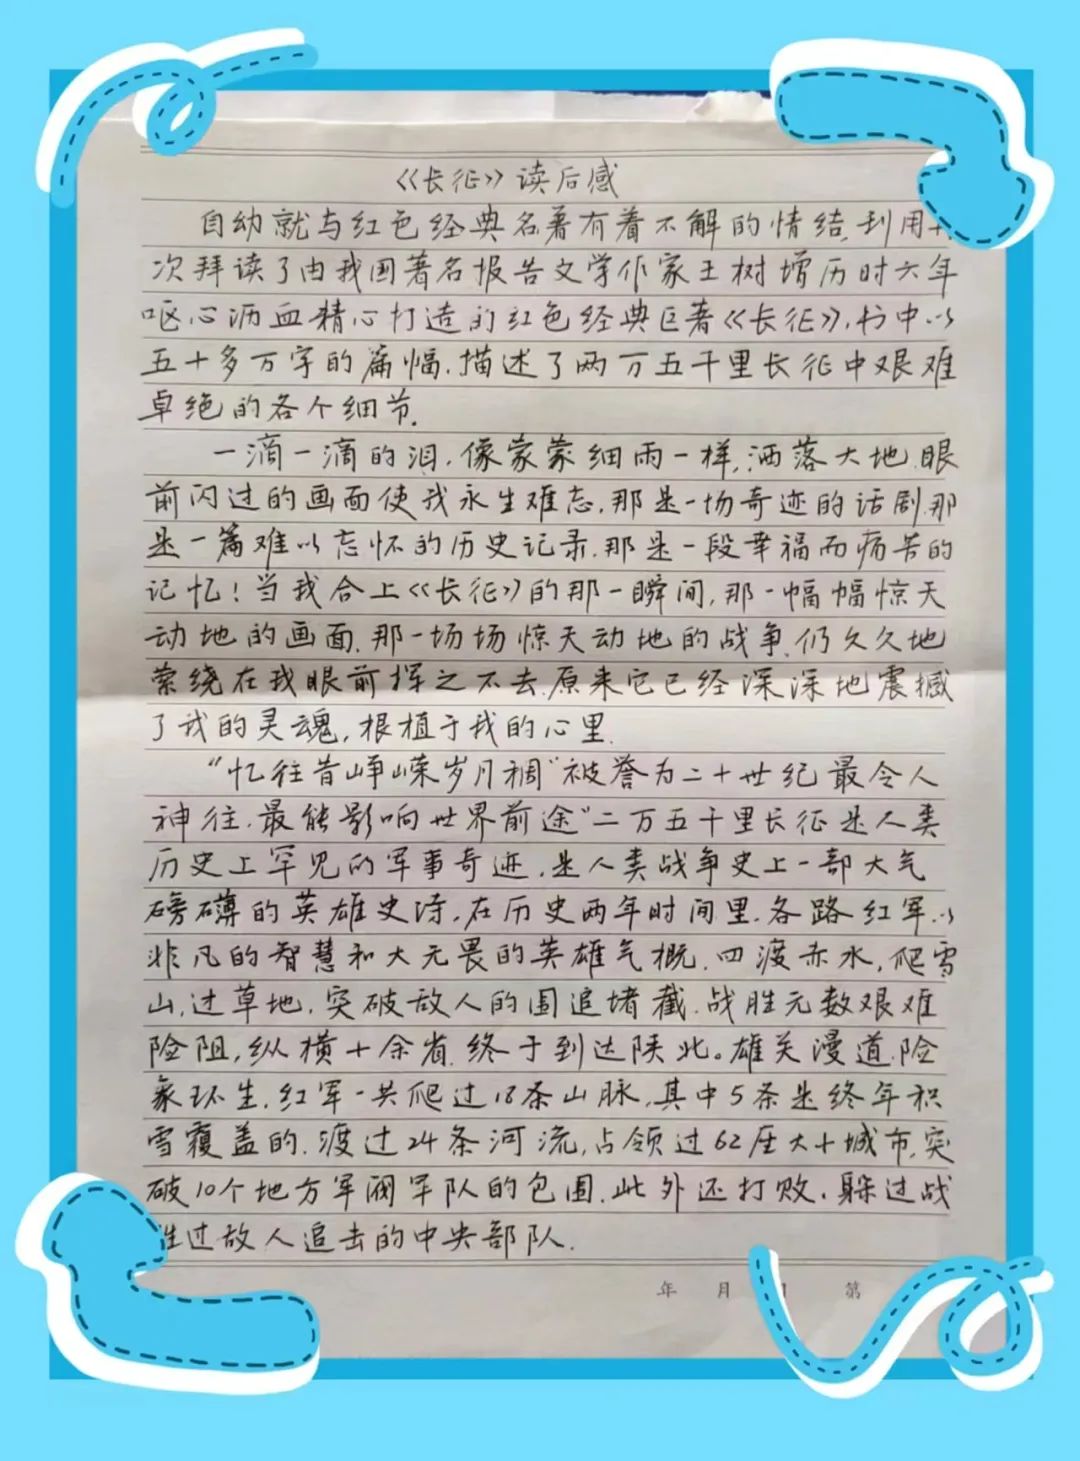 《长征》读后感
自幼就与红色经典名著有着不解的情结,利用
次拜读了由我国著名报告文学作家王树增历时六年
呕心沥血精心打造的红色经典巨著《长征》,书中以
五十多万字的篇幅.描述了两万五千里长征中艰难
卓绝的各个细节.
一滴一滴的泪.像蒙蒙细雨一样,洒落大地.眼
前闪过的画面使我永生难忘.那是一场奇迹的话剧.那
是一篇难以忘怀的历史记录.那是一段幸福而痛苦的
记忆!当我合上《长征》的那一瞬间,那一幅幅惊天
动地的画面.那一场场惊天动地的战争.仍久久地
萦绕在我眼前挥之不去.原来它已经深深地震撼
了我的灵魂,根植于我的心里.
"忆往昔峥嵘岁月稠"被誉为二十世纪最令人
神往.最能影响世界前途"二万五千里长征是人类
历史上罕见的军事奇迹.是人类战争史上一部大气
磅礴的英雄史诗.在历史两年时间里.各路红军以
非凡的智慧和大无畏的英雄气概.四渡赤水,爬雪
山,过草地,突破敌人的围追堵截.战胜无数艰难
险阻,纵横十余省.终于到达陕北。雄关漫道.险
象环生.红军一共爬过18条山脉,其中5条是终年积
雪覆盖的.渡过24条河流,占领过62座大小城市,突
破10个地方军阀军队的包围.此外还打败.躲过战
胜过敌人追击的中央部队.
年 月 日 第